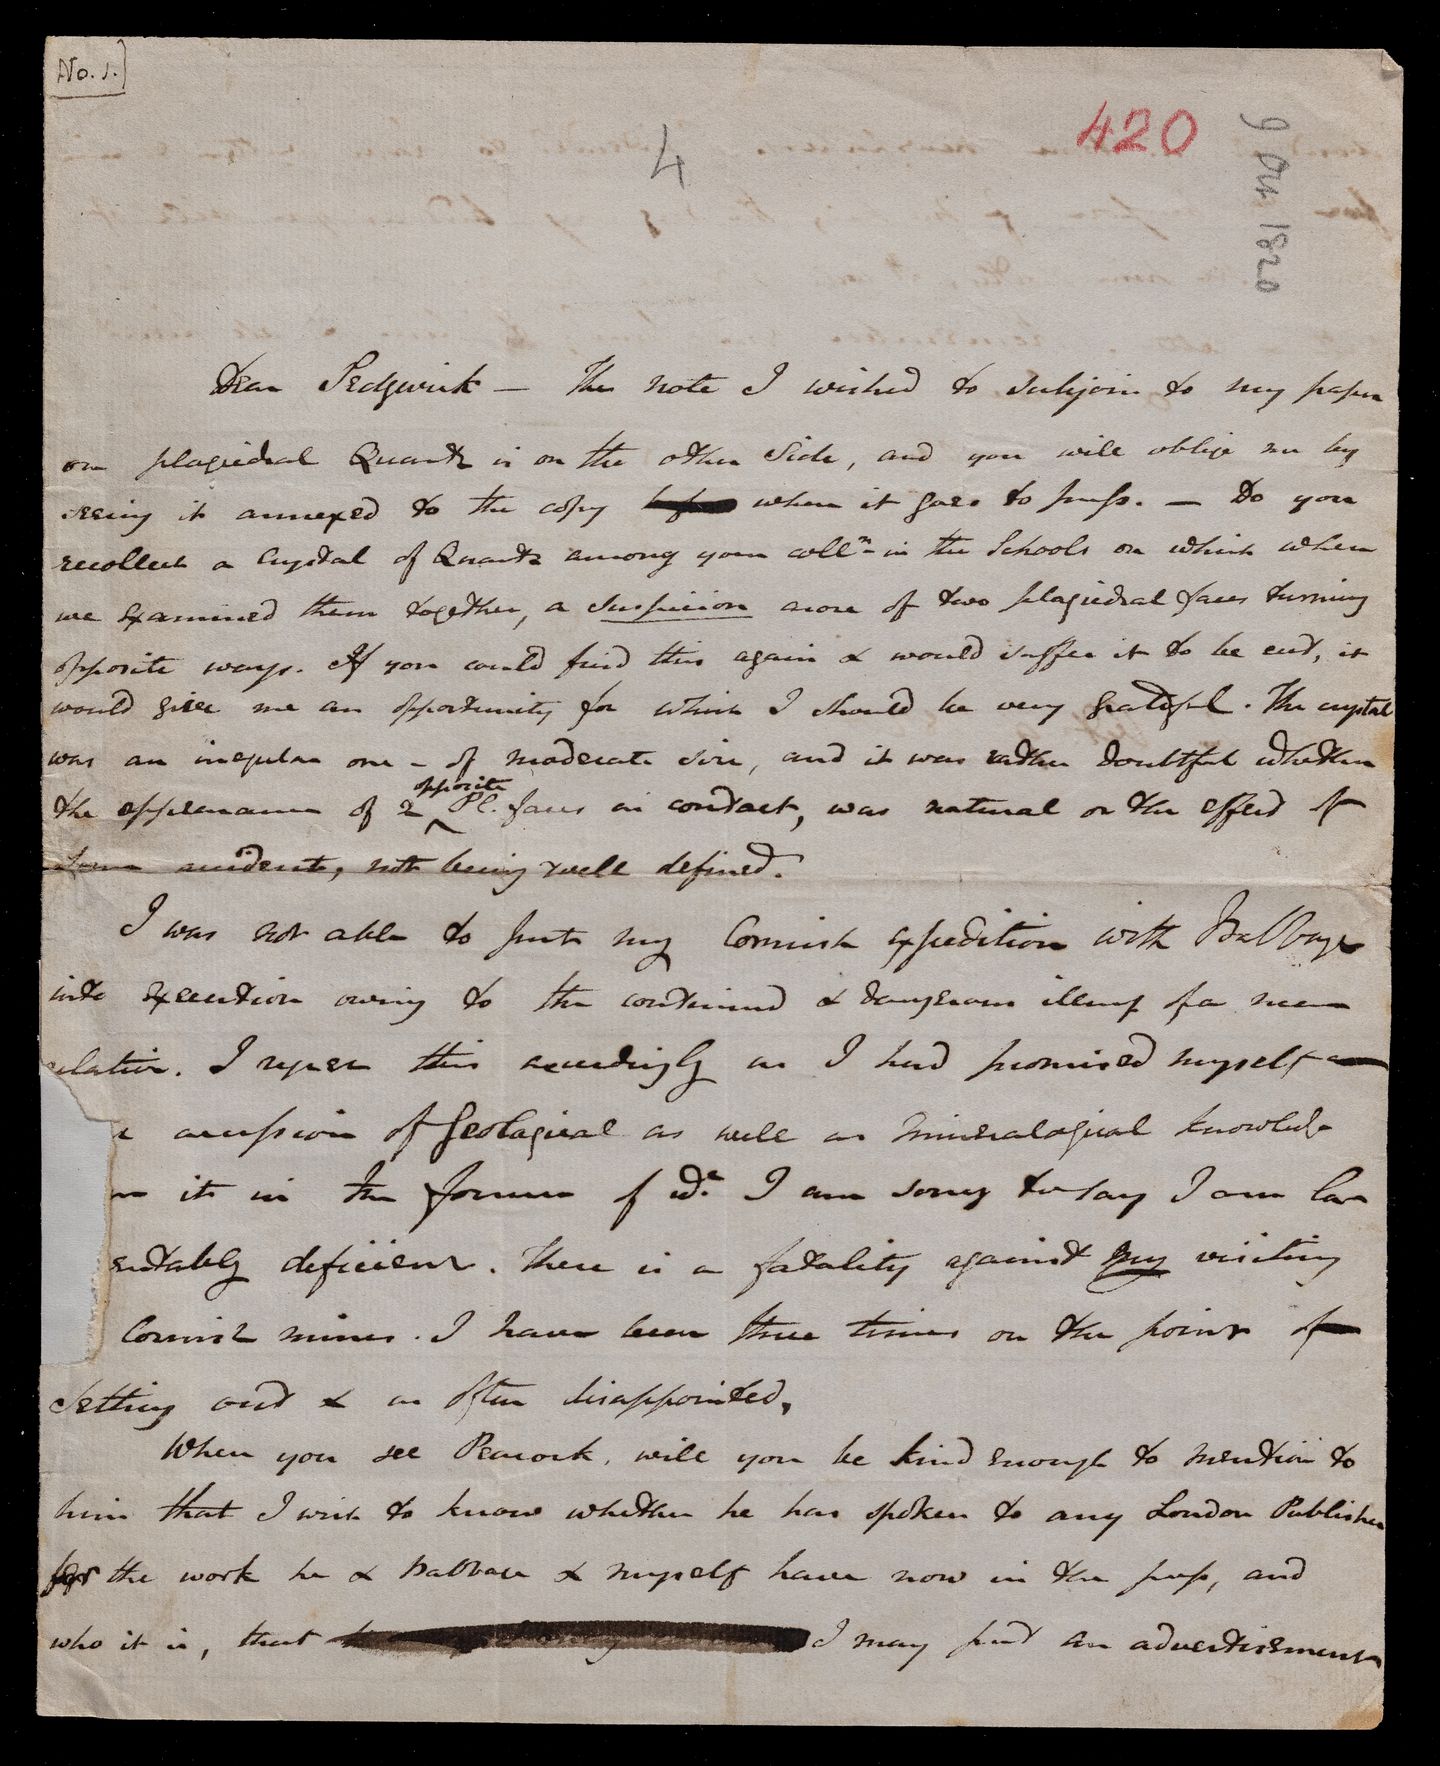 No. 1.
4
420
9 Oct 1820
Dear Sedgwick — The note I wished to subjoin to my paper
on plagiedral Quartz is on the other side, and you will oblige me by
seeing it annexed to the copy when it goes to press. — Do you
recollect a Crystal of Quartz among your colln. in the Schools on which when
we examined them together, a suspicion arose of two plagiedral faces turning
opposite ways. If you could find this again & would suffer it to be cut, it
would give me an opportunity for which I should be very grateful. The crystal
was an irregular one - of moderate size, and it was rather doubtful whether
the appearance of 2 opposite Pl. faces in contact, was natural or the effect of
some accident, not being well defined.
I was not able to put my Cornish expedition with Babbage
into execution owing to the continued & dangerous illness of a near
relative. I regret this exceedingly as I had promised myself
accession of Geological as well as mineralogical knowledge
it in the former of wd. I am sorry to say I am lam
entably deficient. There is a fatality against my visiting
Cornish mines. I have been three times on the point of
setting out & as often disappointed.
When you see Peacock, will you be kind enough to mention to
him that I wish to know whether he has spoken to any London Publisher
for the work he & Babbage & myself have now in the press, and
who it is, that I may put an advertisement